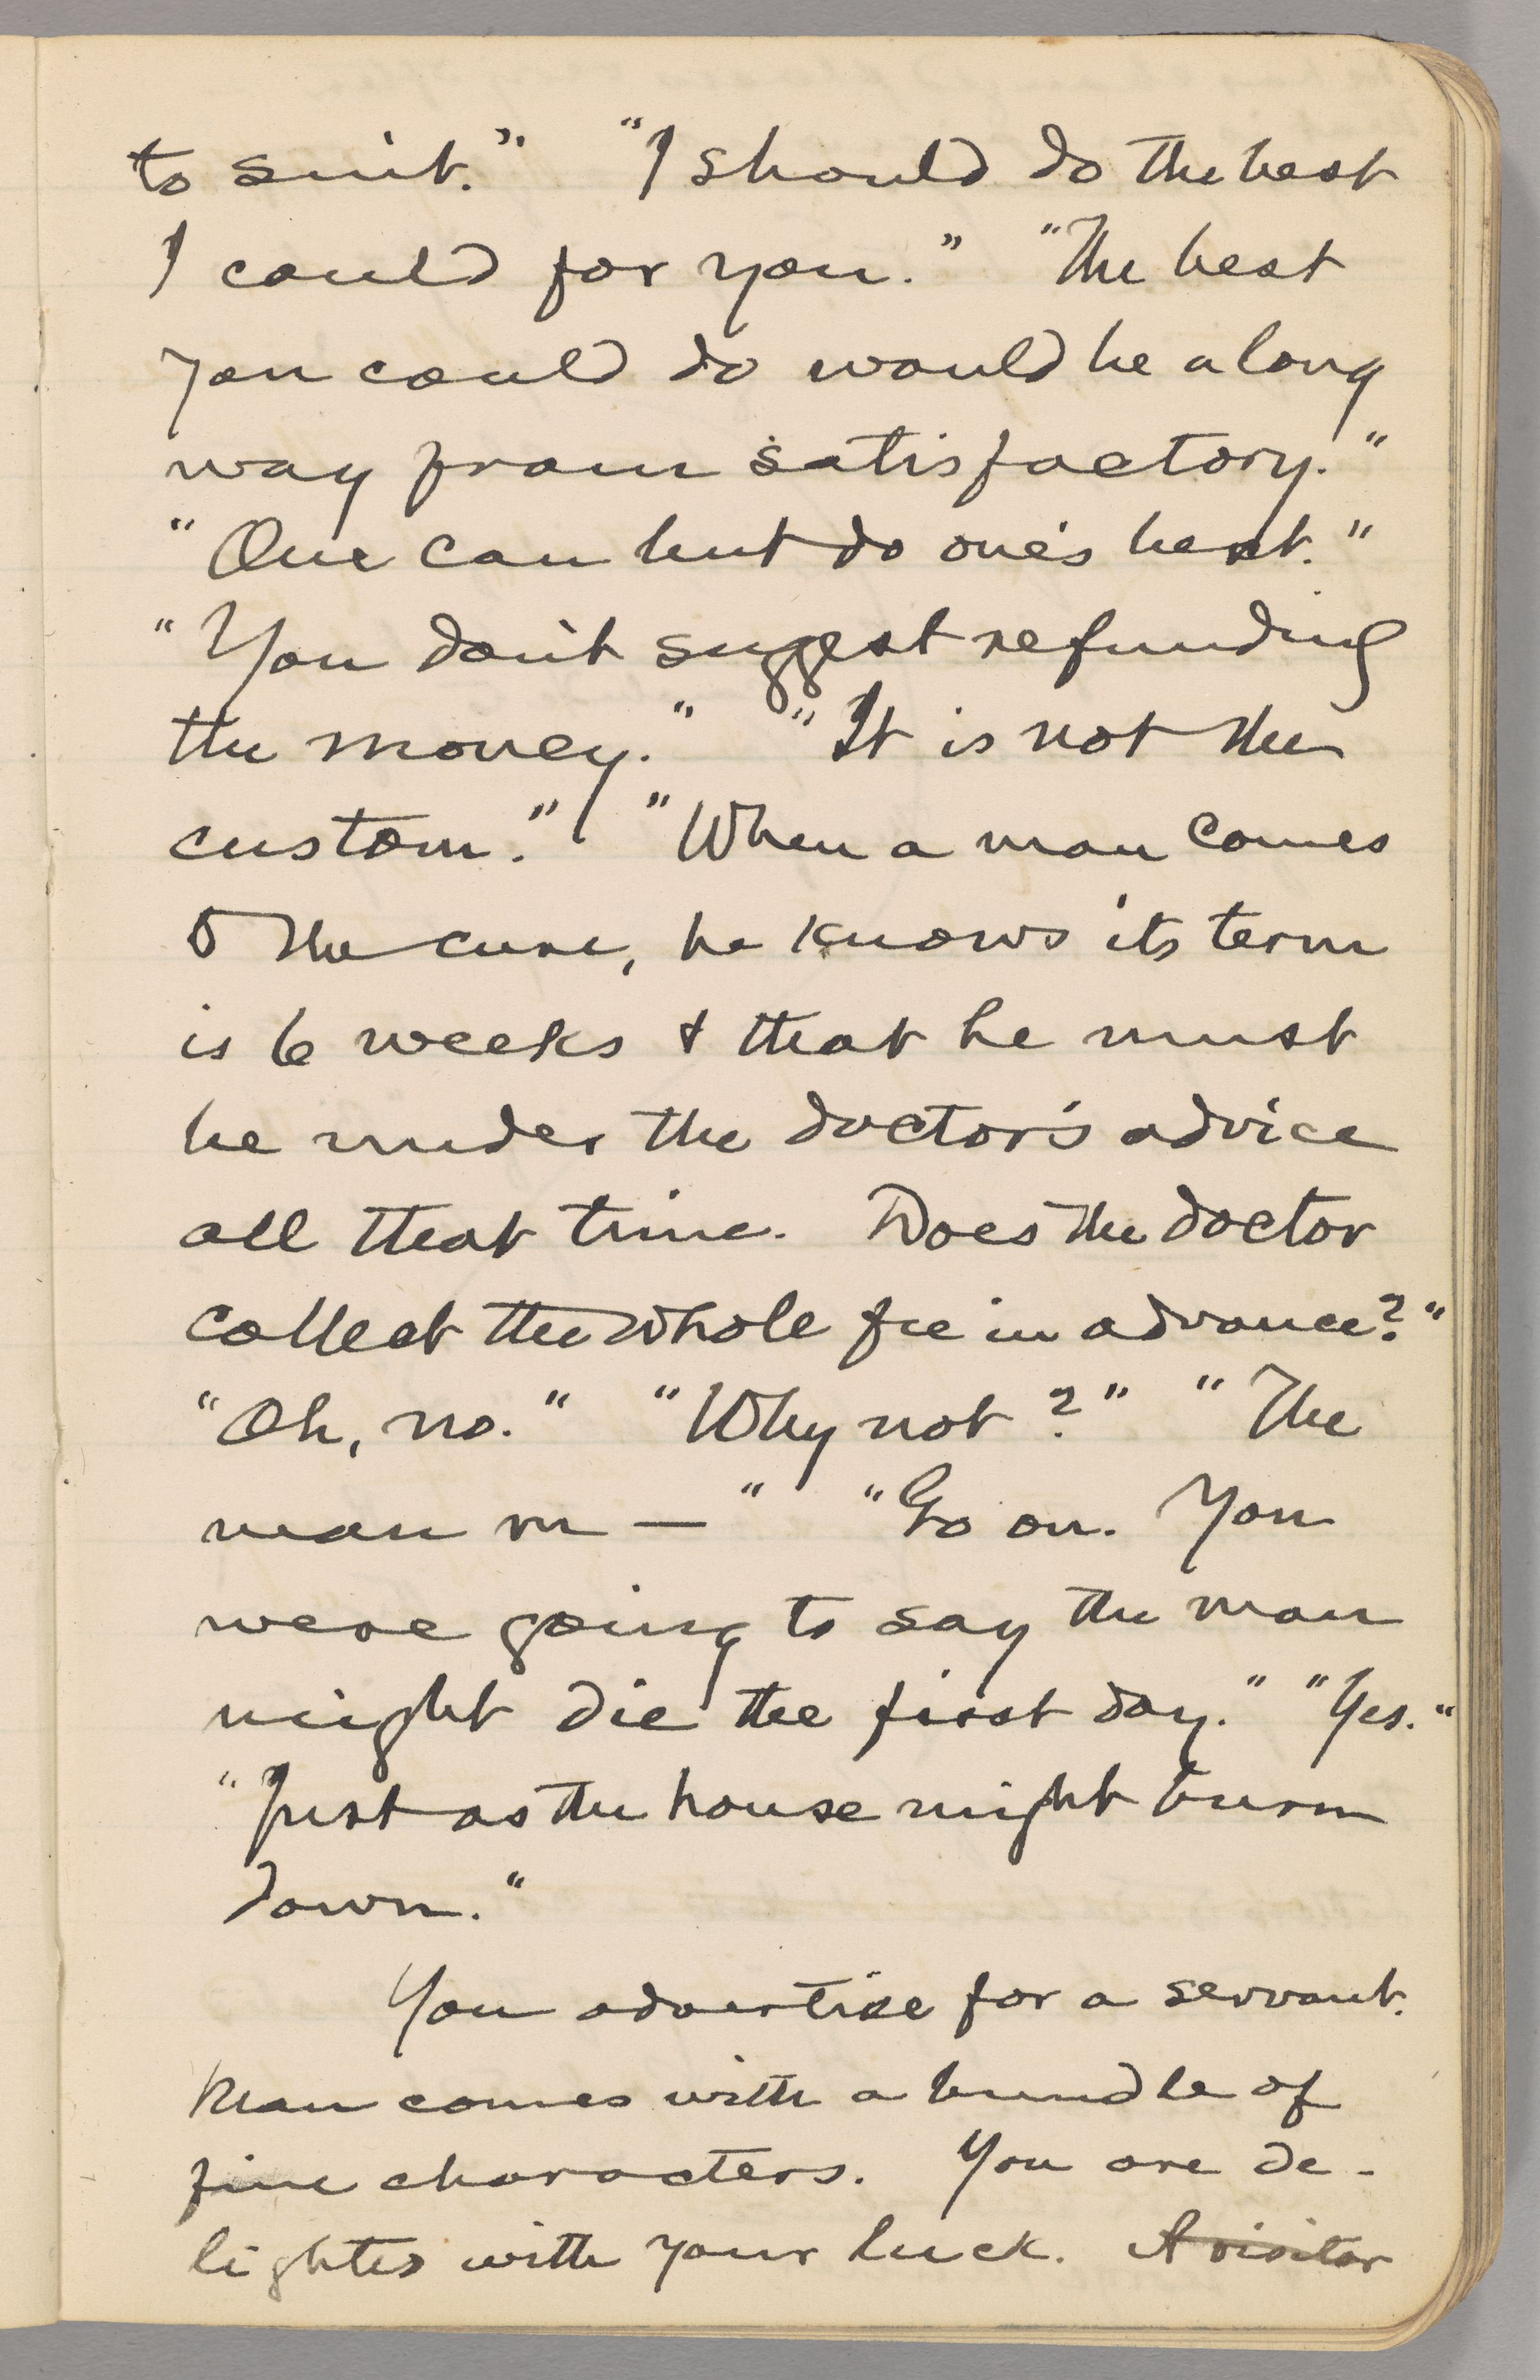 to suit." "I should do the best
I could for you." "The best
you could do would be a long
way from satisfactory."
"One can but do one's best."
"You don't suggest refunding
the money." "It is not the
custom." "When a man comes
to the cure, he knows its term
is 6 weeks & that he must
be under the doctor's advice
all that time. Does the doctor
collect the whole fee in advance?"
"Oh, no." "Why not?" "The
man m—" "Go on. You
were going to say the man
might die the first day." "Yes."
"Just as the house might burn
down."
You advertise for a servant.
Man comes with a bundle of
fine characters. You are de-
lighted with your luck. A visitor